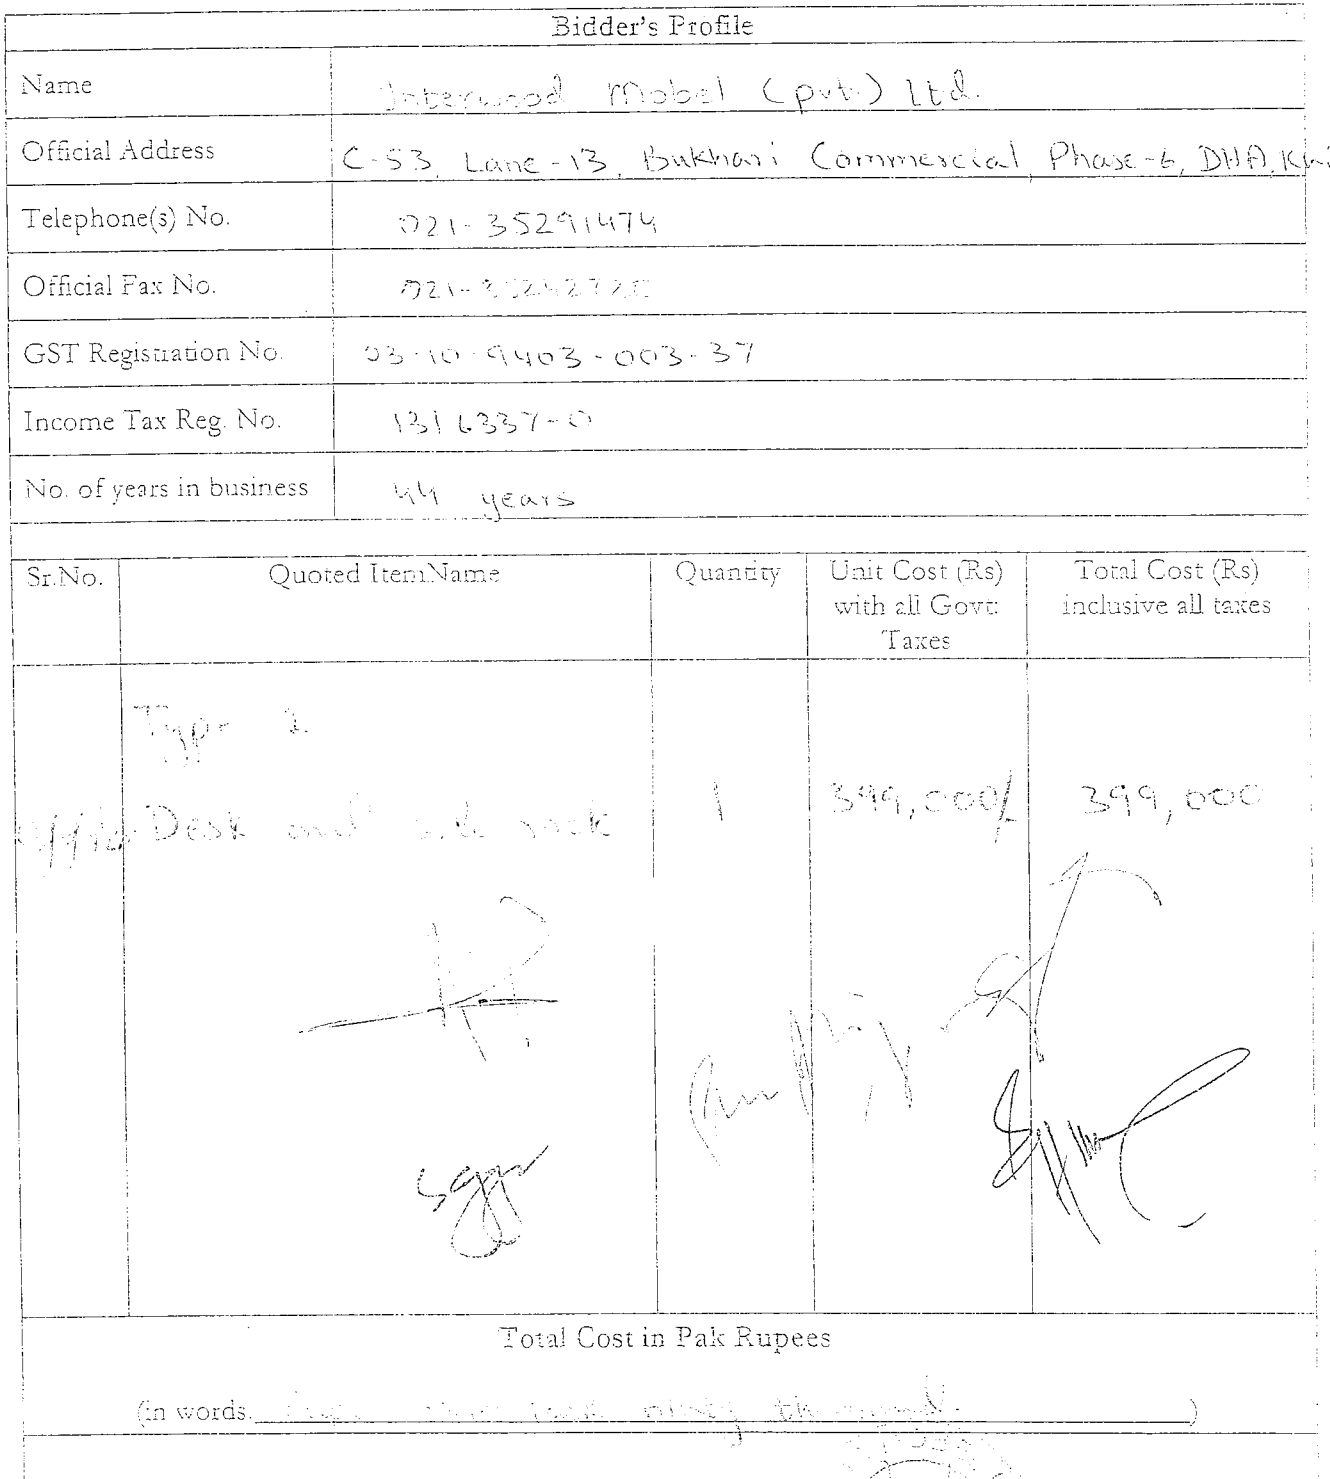 Bidder's Profile
Name Interwood Mobel (pvt.) Ltd.
Official Address C-53, Lane-13, Bukhari Commercial Phase-6, DHA, Khi
Telephone(s) No. 021-35291474
Official Fax No. 021-
GST Registration No. 03-10-9403-003-37
Income Tax Reg. No. 1316337-0
No. of years in business 44 years
Sr.No. Quoted Item Name Quantity Unit Cost (Rs) with all Govt: Taxes Total Cost (Rs) inclusive all taxes
Type
Desk and rack 1 399,000/- 399,000
Total Cost in Pak Rupees
(in words. lack ninty )